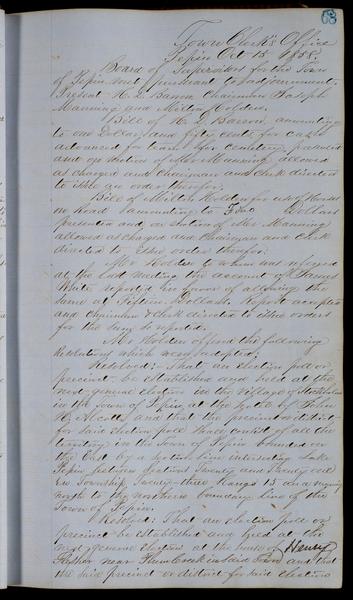 63
Town Clerk's Office
Pepin Oct 15, 1858.
Board of Supervisors for the Town
of Pepin met pursuant to adjournment
Present Chairman Joseph
Manning and Milton Holden.
Bill of H. amounting
to one Dollar and fifty cents for cash
advanced for team for cemetery, presented
and on motion of Mr Manning allowed
as charged and Chairman and Clerk directed
to issue an order therefor.
Bill of Milton Holden for use of Horses
on Road amounting to Two Dollars
presented and on motion of Mr Manning
allowed as charged and Chairman and Clerk
directed to issue order therefor.
Mr Holden to whom was referred
at the last meeting the account of James
White reported in favor of allowing the
same at Fifteen Dollars. Report accepted
and Chairman & Clerk directed to issue orders
for the sum so reported.
Mr Holden offered the following
Resolutions which were adopted:
Resolved: That an election poll or
precinct be established and held at the
next general election in the village of Stockholm
in the Town of Pepin at the
and that the precinct or district
for said election poll shall consist of all the
territory in the Town of Pepin bounded on
the East by a section line intersecting Lake
Pepin between sections Twenty and Twenty one
in Township Twenty-three Range 15 and running
north to the northern boundary line of the
Town of Pepin.
Resolved: That an election poll or
precinct be established and held at the
next general election at the house of Henry
near Plum Creek in said Town and that
the said precinct or district for said election